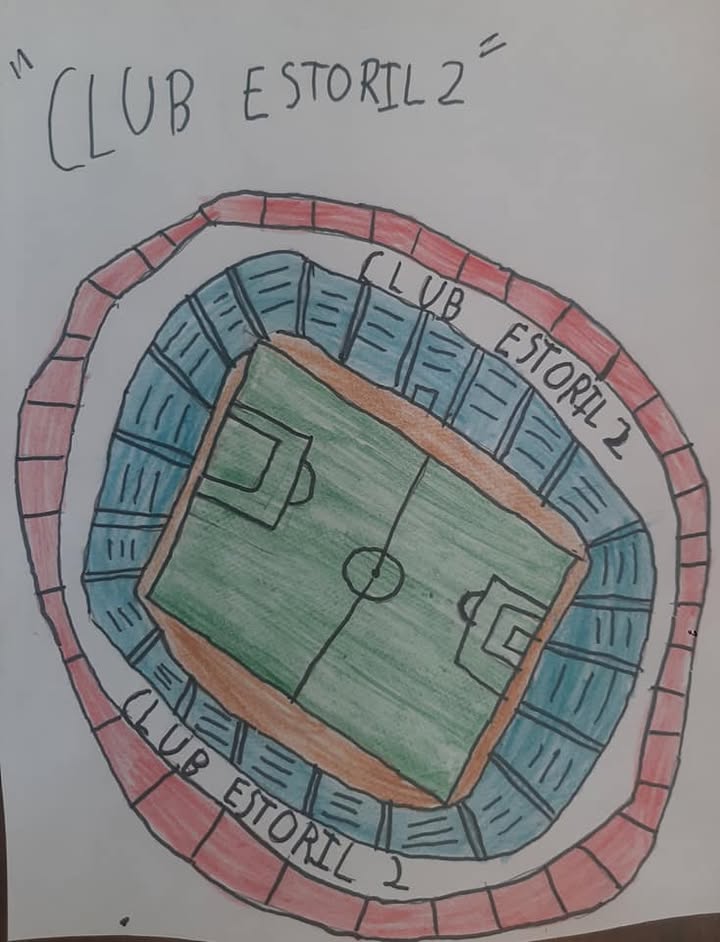 "CLUB ESTORIL 2"
CLUB ESTORIL 2
CLUB ESTORIL 2